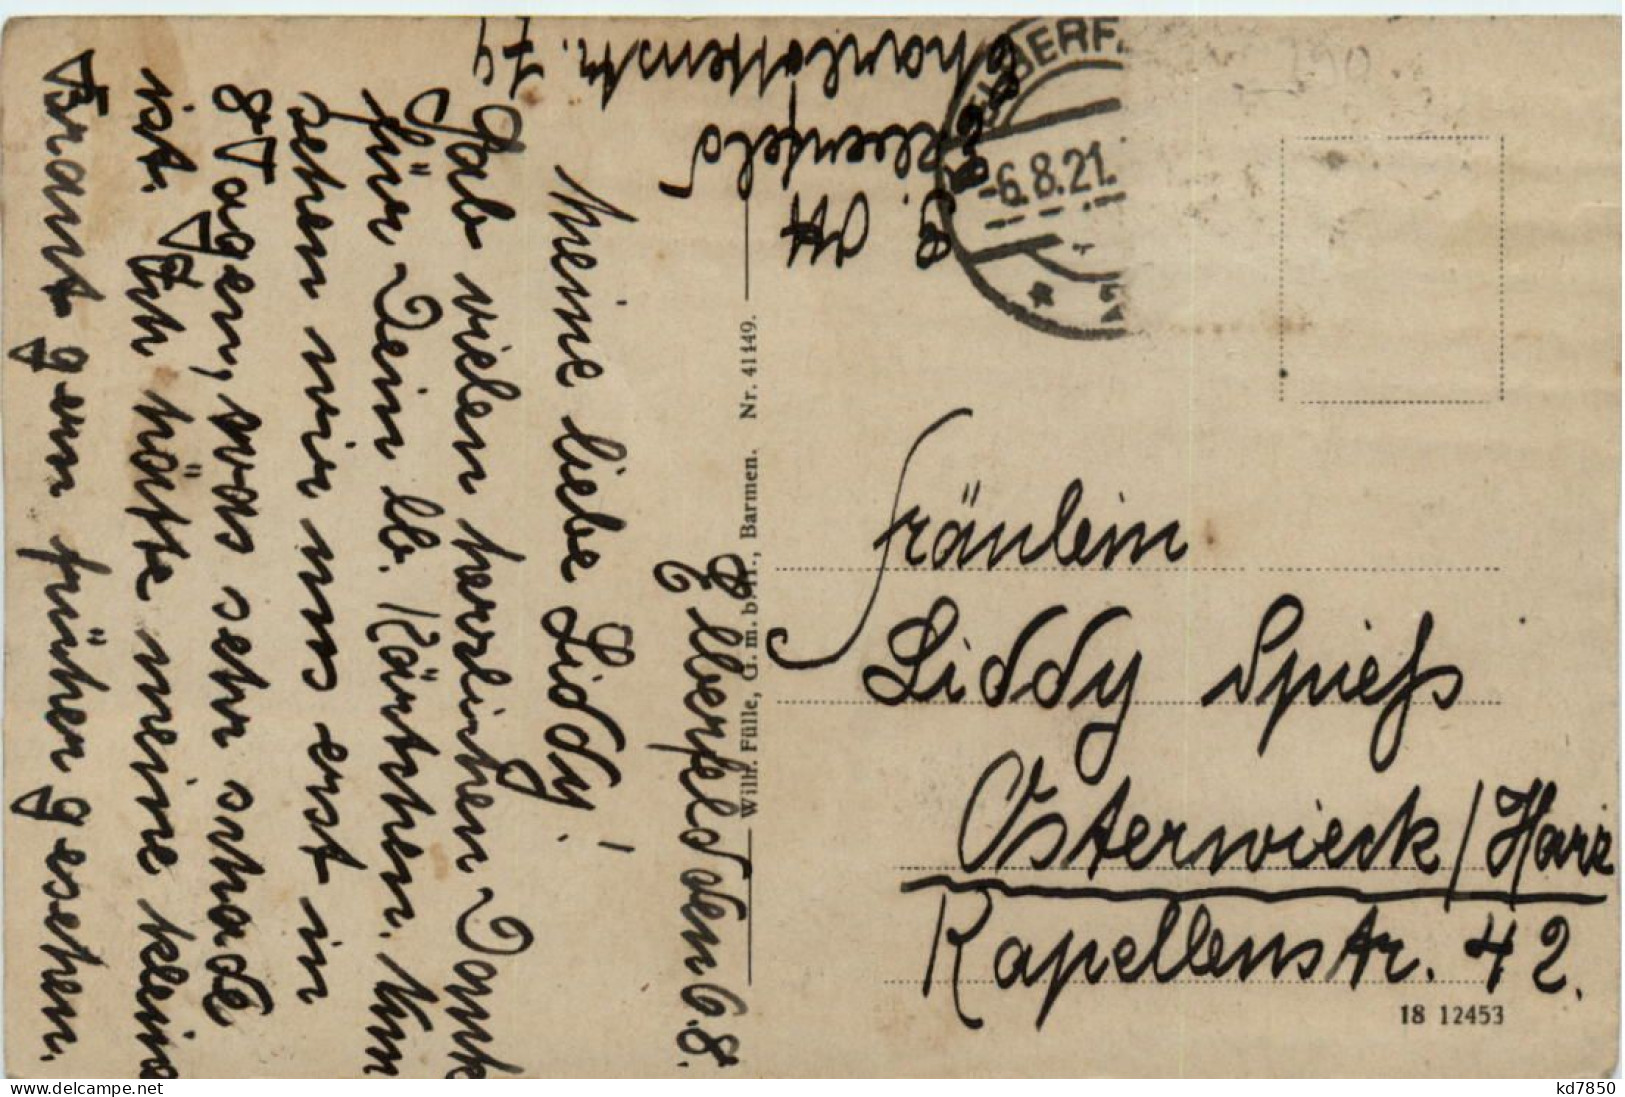 Elberfeld den 6. 8.
Meine liebe Liddy!
Hab vielen herzlichen Dank
für Dein lb. Kärtchen. Nun
sehen wir uns erst in
8 Tagen, was sehr schade
ist. Ich hätte meine kleine
Braut gern früher gesehen.
E. Ott
Elberfeld
Charlottenstr. 74
ELBERF.
-6.8.21.
Wilh. Fülle, G. m. b. H., Barmen. Nr. 41149.
Fräulein
Liddy Spieß
Osterwieck / Harz
Kapellenstr. 42.
18 12453
www.delcampe.net
kd7850